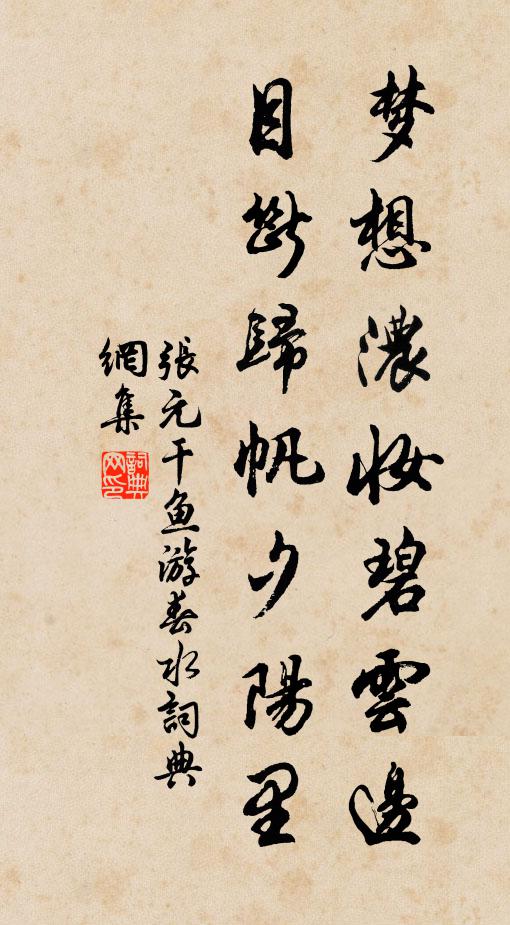 梦想濃妝碧雲邊
目斷歸帆夕陽里
張元干魚游春水詞典
網集
詞典網印